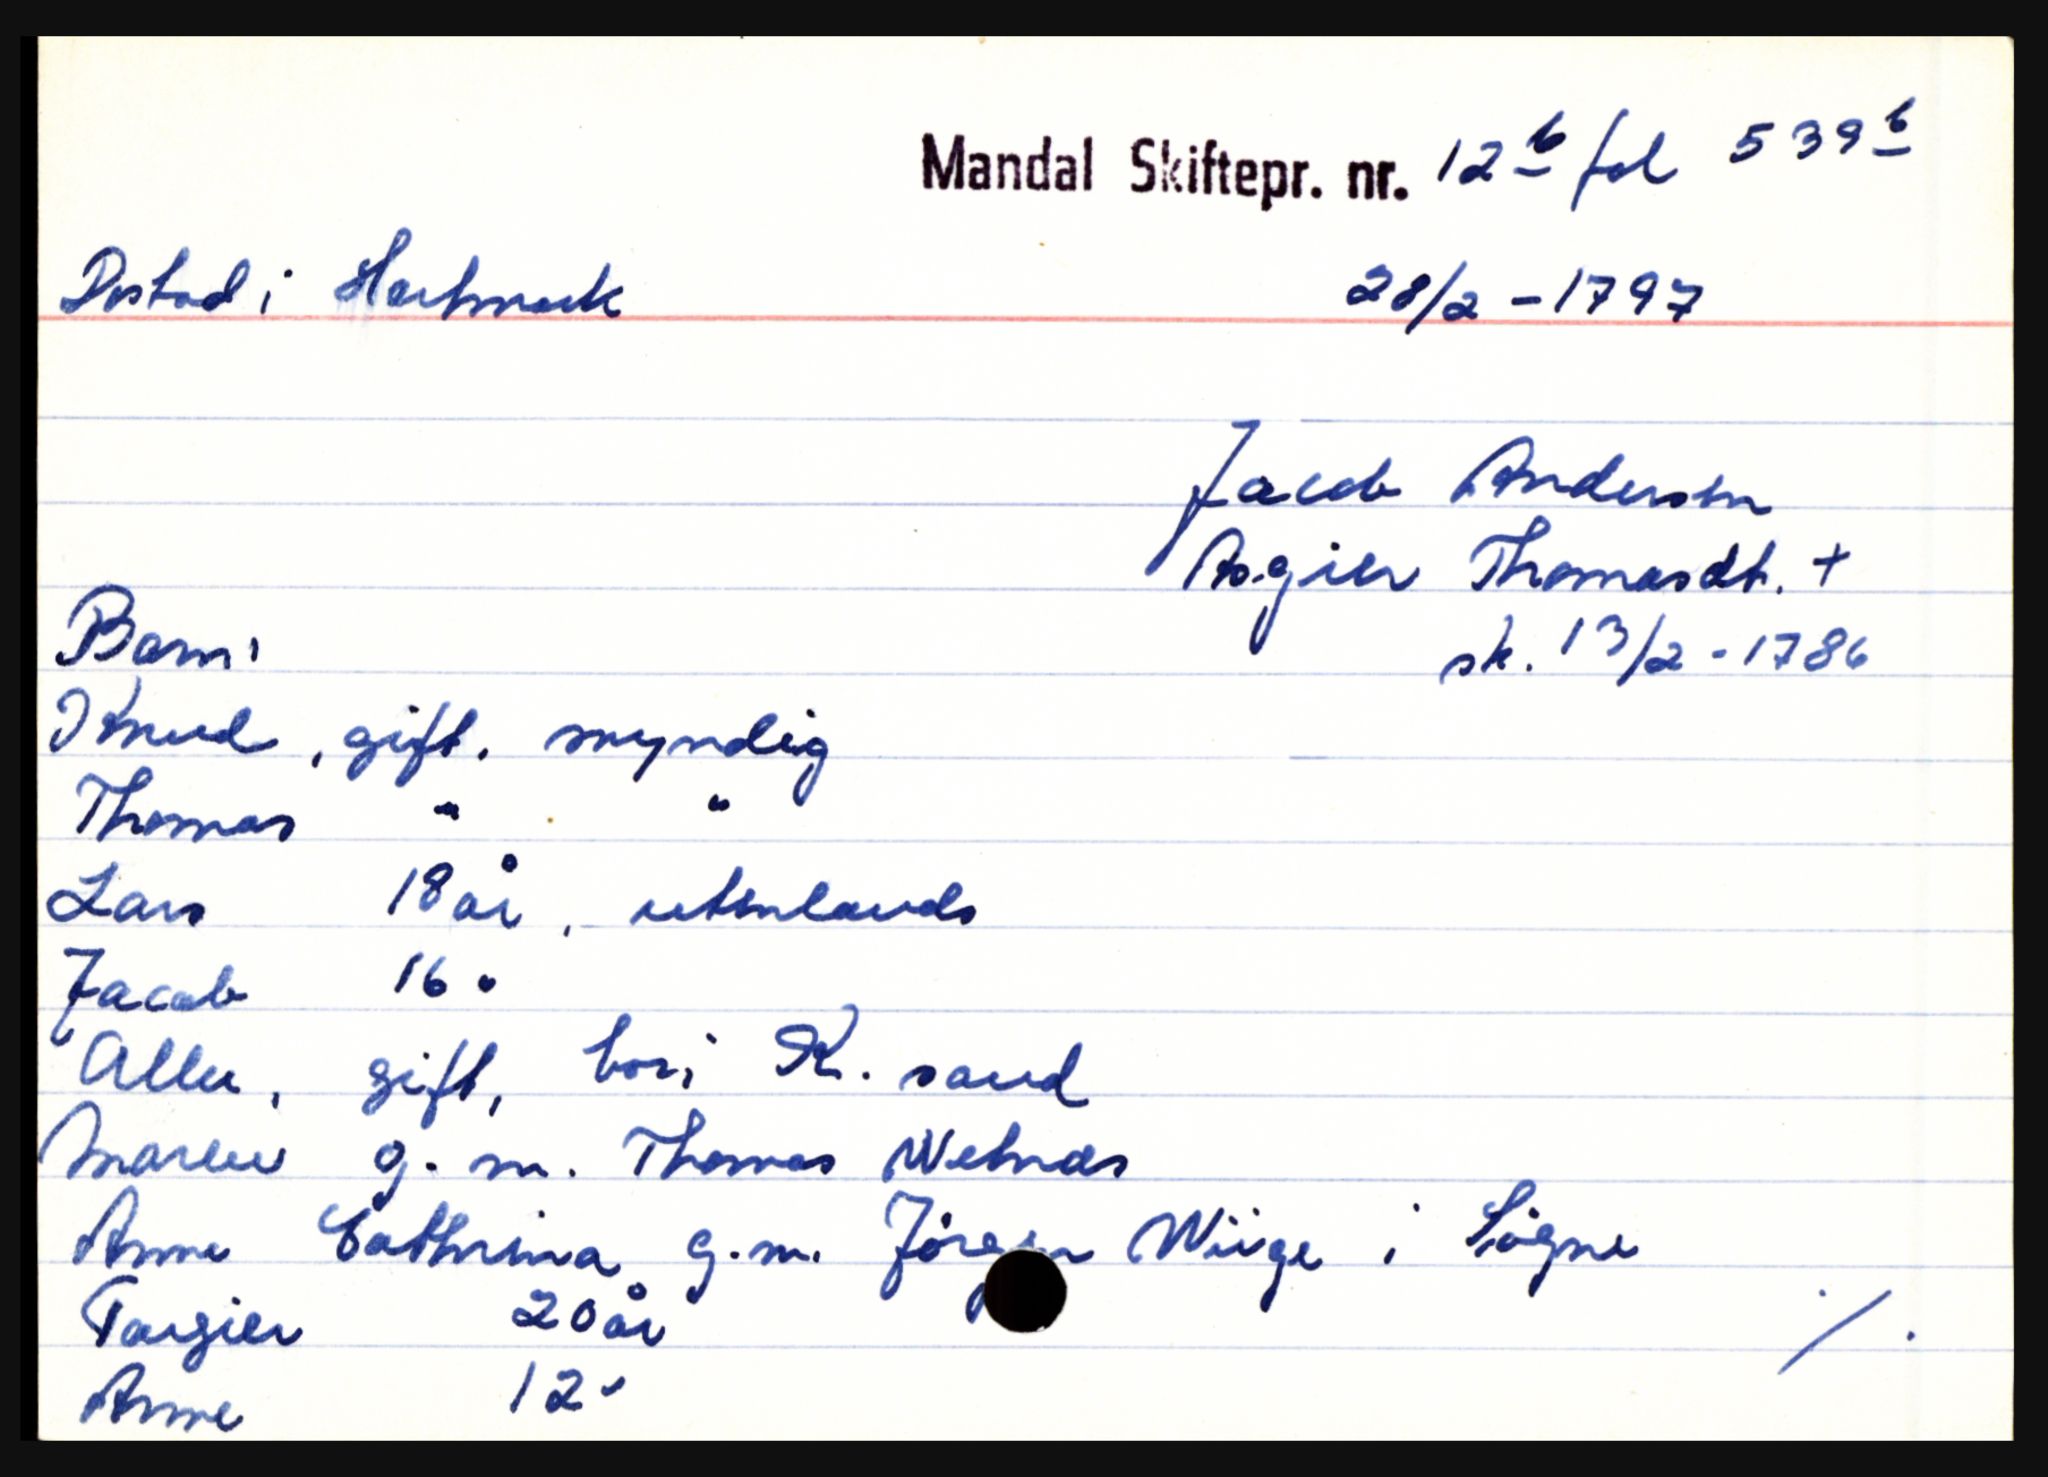 Mandal Skiftepr. nr. 12 b fol 539 b
Dostad i Harkmark 28/2 - 1797
Jacob Andersen
As.gier Thomasdt. +
sk. 13/2 - 1786
Barn:
Knud, gift, myndig
Thomas " "
Lars 18 år, utenlands
Jacob 16 "
Allee, gift, bor i K.sand
Maren g. m. Thomas Wetnæs
Anne Cathrina g. m. Jörgen Wiige i Sögne
Targier 20 år
Anne 12 "
/.